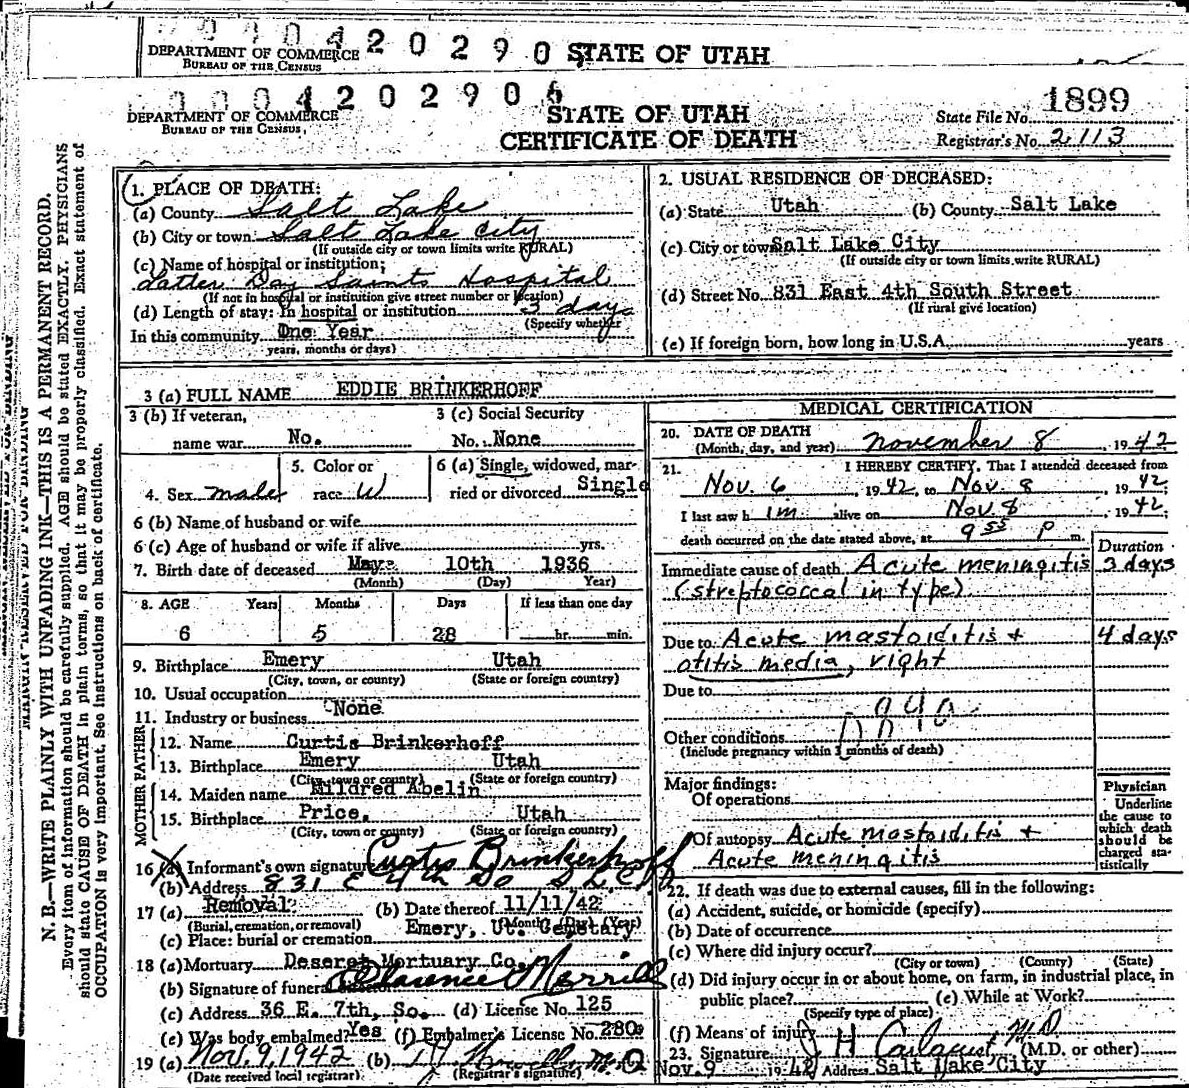 0004202906 STATE OF UTAH
DEPARTMENT OF COMMERCE
BUREAU OF THE CENSUS
0004202906
DEPARTMENT OF COMMERCE
BUREAU OF THE CENSUS
STATE OF UTAH
CERTIFICATE OF DEATH
State File No. 1899
Registrar's No. 2113
N. B.—WRITE PLAINLY WITH UNFADING INK—THIS IS A PERMANENT RECORD.
Every item of information should be carefully supplied. AGE should be stated EXACTLY. PHYSICIANS
should state CAUSE OF DEATH in plain terms, so that it may be properly classified. Exact statement of
OCCUPATION is very important. See instructions on back of certificate.
1. PLACE OF DEATH:
(a) County Salt Lake
(b) City or town Salt Lake City
(If outside city or town limits write RURAL)
(c) Name of hospital or institution:
Latter Day Saints Hospital
(If not in hospital or institution give street number or location)
(d) Length of stay: In hospital or institution 3 days
(Specify whether
In this community One Year
years, months or days)
2. USUAL RESIDENCE OF DECEASED:
(a) State Utah (b) County Salt Lake
(c) City or town Salt Lake City
(If outside city or town limits write RURAL)
(d) Street No. 831 East 4th South Street
(If rural give location)
(e) If foreign born, how long in U.S.A. years
3 (a) FULL NAME EDDIE BRINKERHOFF
3 (b) If veteran,
name war No.
3 (c) Social Security
No. None
4. Sex male
5. Color or
race W
6 (a) Single, widowed, mar-
ried or divorced Single
6 (b) Name of husband or wife
6 (c) Age of husband or wife if alive yrs.
7. Birth date of deceased May 10th 1936
(Month) (Day) Year)
8. AGE Years Months Days If less than one day
6 5 28 hr. min.
9. Birthplace Emery Utah
(City, town, or county) (State or foreign country)
10. Usual occupation
None
11. Industry or business
FATHER
12. Name Curtis Brinkerhoff
13. Birthplace Emery Utah
(City, town or county) (State or foreign country)
MOTHER
14. Maiden name Mildred Abelin
15. Birthplace Price, Utah
(City, town or county) (State or foreign country)
16 (a) Informant's own signature Curtis Brinkerhoff
(b) Address 831 E 4th So S L City
17 (a) Removal (b) Date thereof 11/11/42
(Burial, cremation, or removal) (Month) (Day) (Year)
(c) Place: burial or cremation Emery, Ut. Cemetary
18 (a) Mortuary Deseret Mortuary Co.
(b) Signature of funeral Clarence Merrill
(c) Address 36 E. 7th, So. (d) License No. 125
(e) Was body embalmed? Yes (f) Embalmer's License No. 280
19 (a) Nov. 9, 1942 (b) M.D.
(Date received local registrar) (Registrar's signature)
MEDICAL CERTIFICATION
20. DATE OF DEATH
(Month, day, and year) November 8, 1942
21. I HEREBY CERTIFY, That I attended deceased from
Nov. 6, 1942, to Nov. 8, 1942;
I last saw him alive on Nov 8, 1942;
death occurred on the date stated above, at 9 55 P m.
Duration
Immediate cause of death Acute meningitis 3 days
(streptococcal in type)
Due to Acute mastoiditis + 4 days
otitis media, right
Due to
Other conditions
(Include pregnancy within 3 months of death)
Major findings:
Of operations
Of autopsy Acute mastoiditis +
Acute meningitis
Physician
Underline
the cause to
which death
should be
charged sta-
tistically
22. If death was due to external causes, fill in the following:
(a) Accident, suicide, or homicide (specify)
(b) Date of occurrence
(c) Where did injury occur?
(City or town) (County) (State)
(d) Did injury occur in or about home, on farm, in industrial place, in
public place? (e) While at Work?
(Specify type of place)
(f) Means of injury
23. Signature J H Carlquist, M.D. (M.D. or other)
Nov. 9 1942 Address Salt Lake City